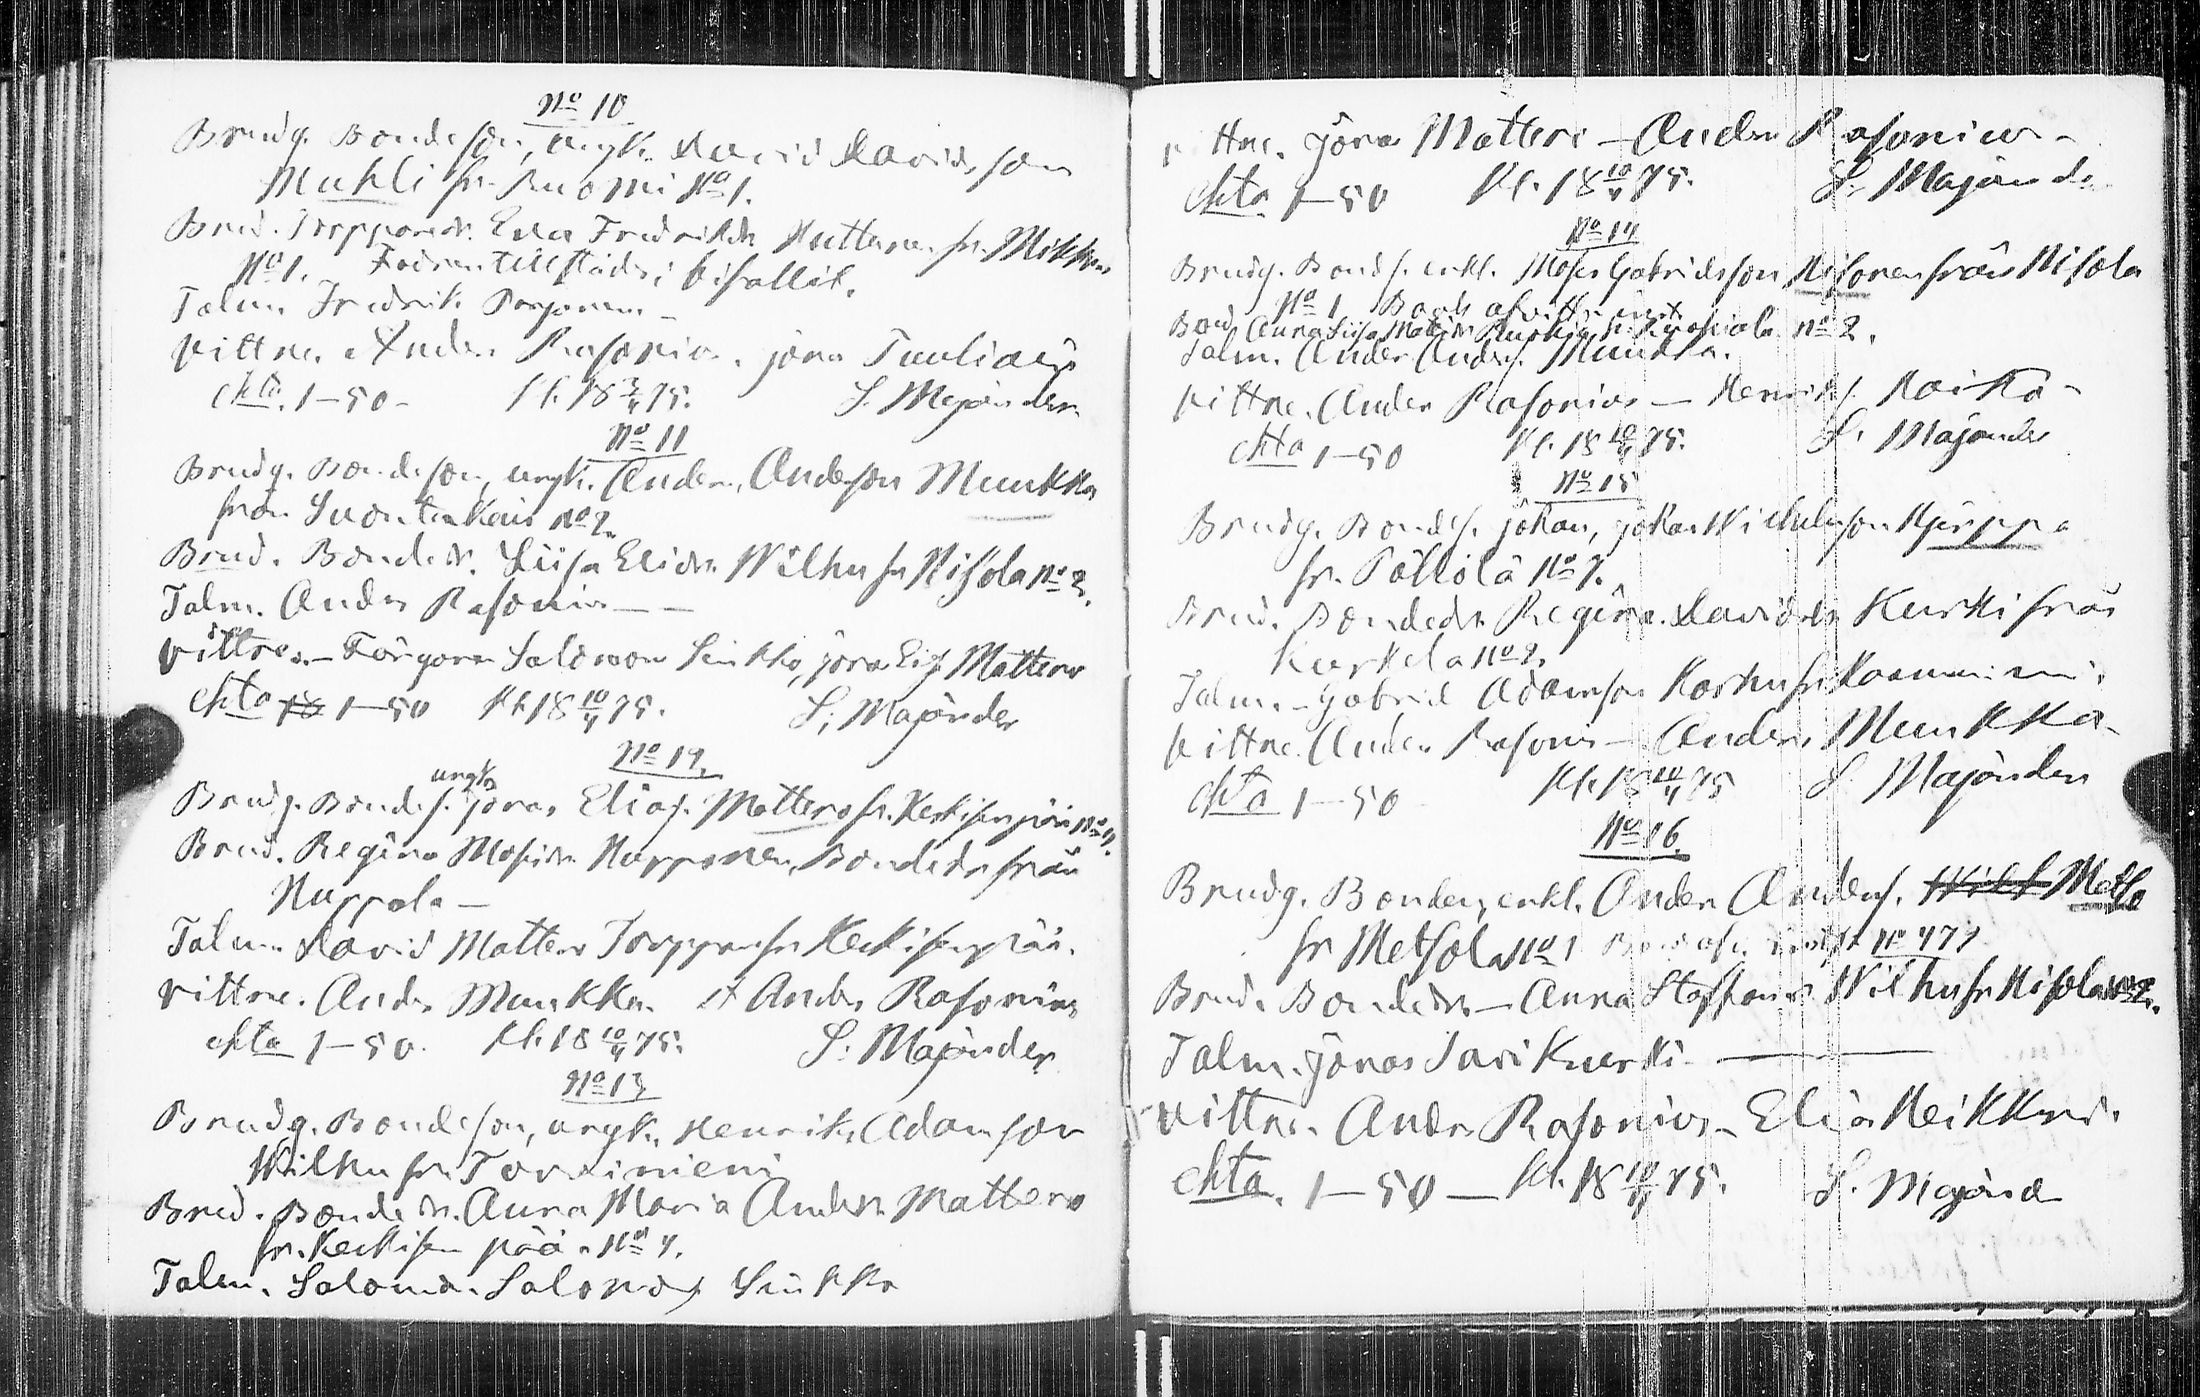 No 10
Brudg. Bondeson, ungk. David Davidsson
Muhli fr. Kuomi No 1.
Brud. Torppared. Eva Fredriksdr Huttunen fr. Mikkeri
No 1. Fadren tillstädes; bifallit.
Talm. Fredrik
vittne. Anders Rasonius. Jöna Tuuliainen
ekta. 1-50- Kl. 18 3/4 75. S. Majander
No 11
Brudg. Bondeson, ungk. Anders, Andersson Muukka
från No 2.
Brud. Bondedr. Liisa Eliedr. Wilhu fr Hisola No 2.
Talm. Anders Rasonius —
vittne. — Salomon Sinkko, Jöna Eli Mattero
ekta 1-50 Kl. 18 10/4 75. S. Majander
No 12.
ungk.
Brudg. Bondes. Jonas Elias. Mattero fr. Keskisenpää No 4.
Brud. Regina Mosisdr Hupponen, Bondedr från
Huppola —
Talm. David Mattero Torppare fr Keskisenpää.
vittne. Anders Muukka. & Anders Rasonius
ekta 1-50. Kl. 18 10/4 75. S. Majander
No 13
Brudg. Bondeson, ungk. Henrik, Adamsson
Wilhu fr.
Brud. Bondedr. Anna Maria Andersdr Mattero
fr. Keskisenpää No 4.
Talm. Salomon Salomons Sinkko
vittne. Jöna Mattero — Anders Rasonius -
ekta 1-50 Kl. 18 10/4 75. S. Majander
No 14
Brudg. Bonds. enkl. Moses Gabrielsson Hisonen från Hisola
No 1
Brud Anna Liisa Matsdr No 2.
Talm. Anders Anders. Muukka.
vittne. Anders Rasonius — Henriks. Koikka -
ekta 1-50 Kl. 18 10/4 75. S. Majander
No 15
Brudg. Bondes. Johan, Johan Wilhelmsson Kjärppä
fr. Pöllölä No 7.
Brud. Bondedr. Regina Davidsdr Kurki från
Kurkela No 2.
Talm. — Gabriel Adamsson Karhu fr.
vittne. Anders Rasonius — Anders Muukka -
ekta 1-50 Kl. 18 10/4 75 S. Majander
No 16.
Brudg. Bonden, enkl. Anders Anders. Metso
fr Metsola No 1 No 477
Brud. Bondedr. — Anna Staffansdr Wilhu fr Hisola No 2.
Talm. Jonas Savikurki —
vittne. Anders Rasonius — Elias Heikkinen.
ekta. 1-50 — Kl. 18 10/4 75. S. Majander